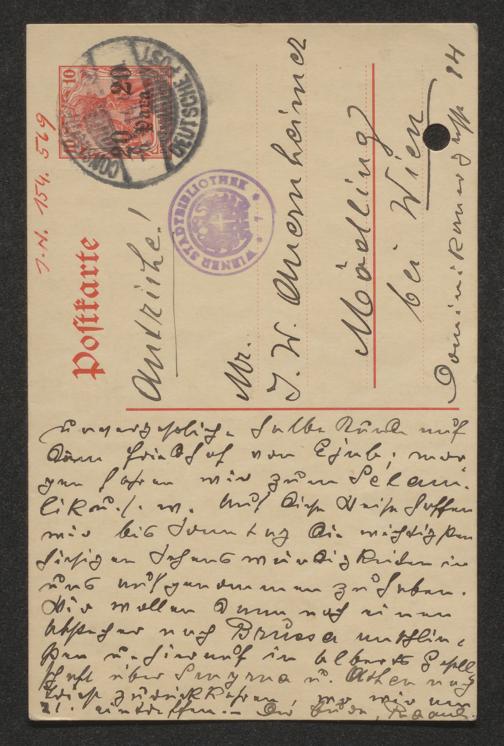 J.N. 154.569
10
20 20
Para
CONSTANTINOPEL
DEUTSCHE POST
WIENER STADTBIBLIOTHEK
Postkarte
Autriche!
Mr.
J. W. Auernheimer
Mödling
bei Wien
Dominikanergasse 14
unvergeßliche halbe Stunde auf
dem Friedhof von Ejub; mor
gen fahren wir zum Selam-
lik u.s.w. Auf diese Weise hoffen
wir bis Sonntag die wichtigsten
hiesigen Sehenswürdigkeiten in
uns aufgenommen zu haben.
Wir wollen dann noch einen
Abstecher nach Brussa anschlie-
ßen u. hierauf in Alberts Gesell
schaft über Smyrna u. Athen nach
Triest zurückfahren, wo wir am
21. eintreffen. – Dein